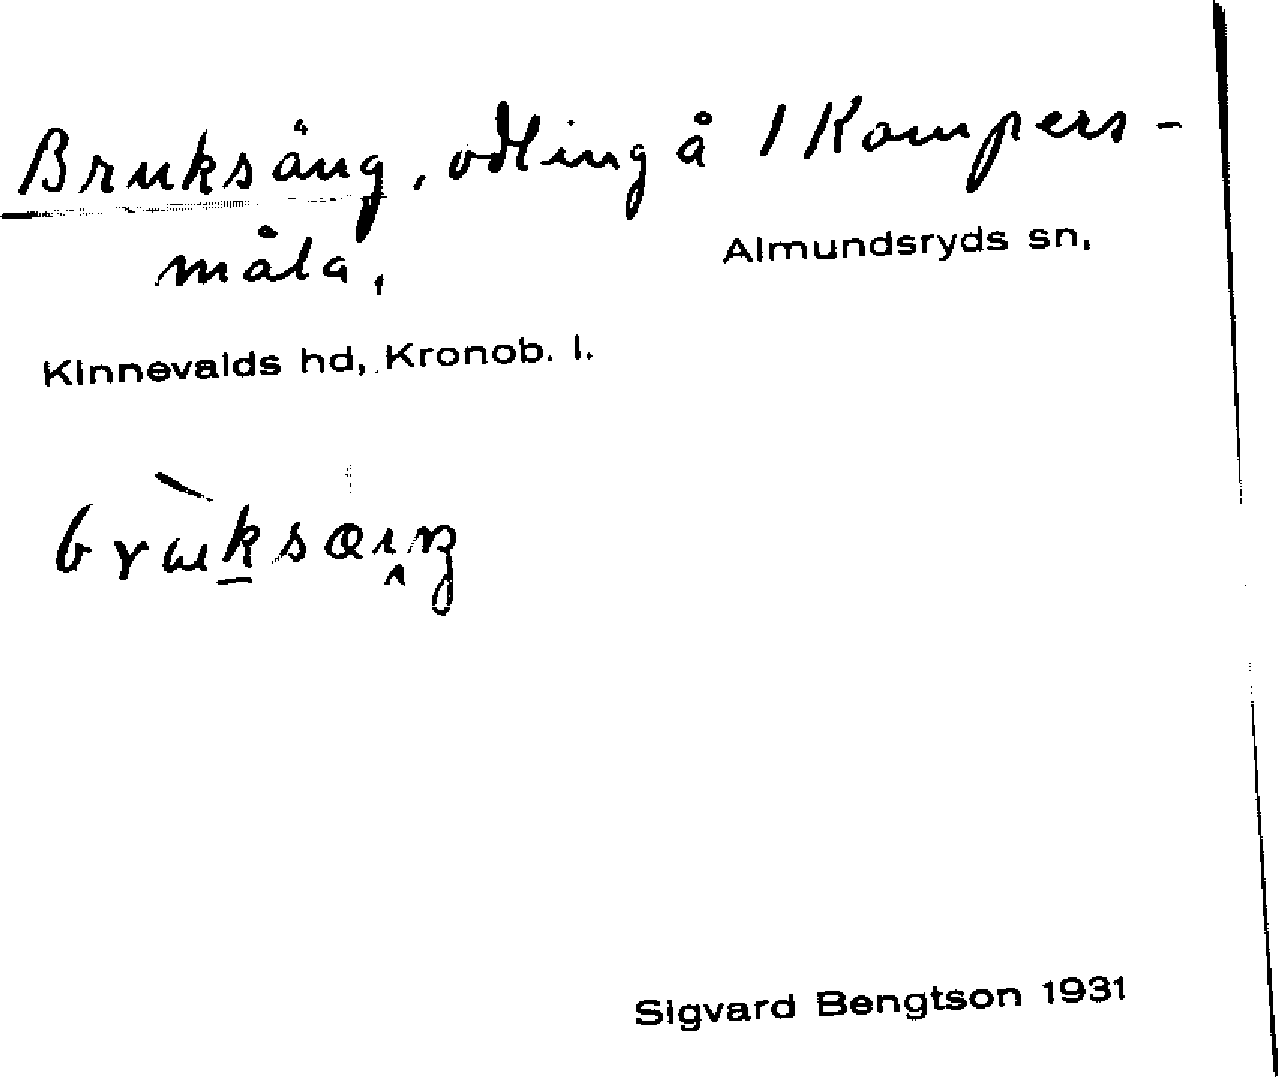 Bruksäng, odling å 1 Kampers-
måla,
Almundsryds sn,
Kinnevalds hd, Kronob. l.
Sigvard Bengtson 1931